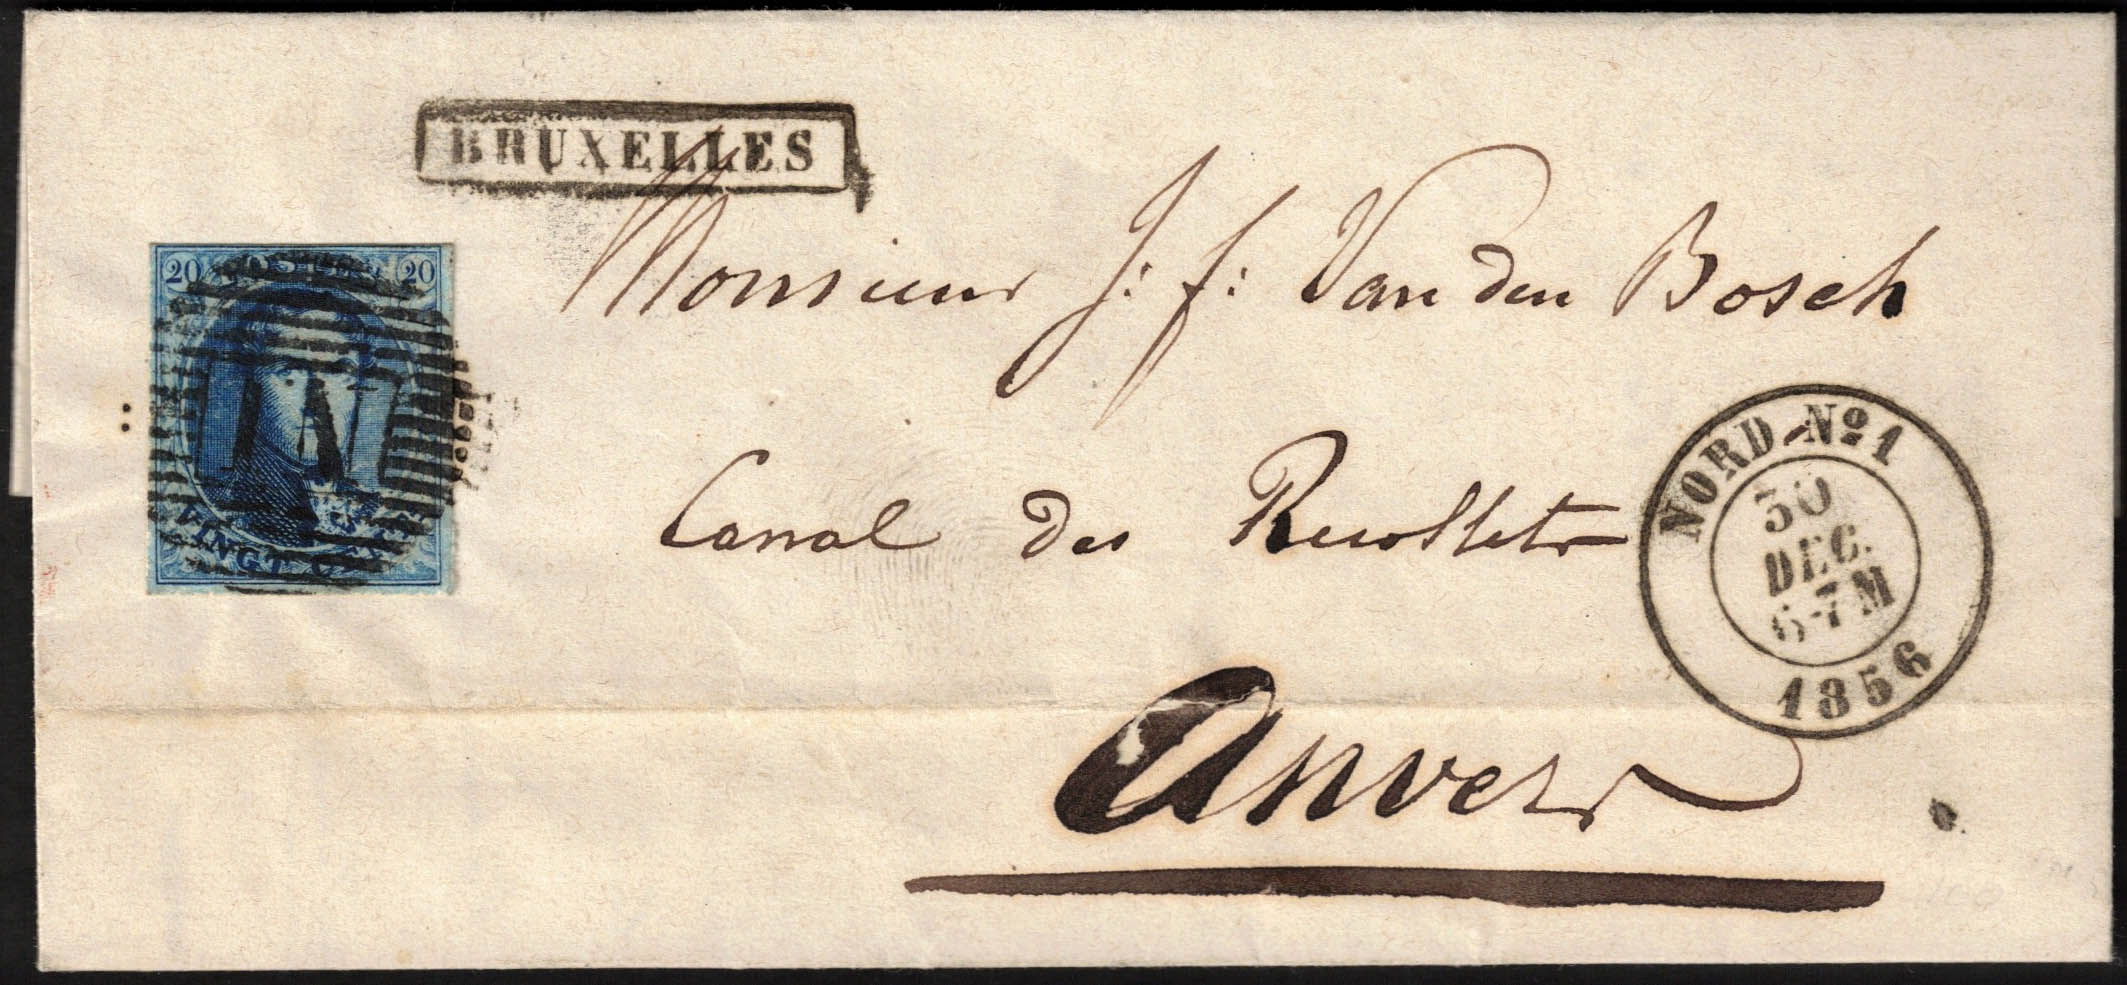 BRUXELLES
20 POSTES 20
VINGT C
Monsieur J: f: Van den Bosch
Canal des Recollets
Anvers
NORD Nº 1
30
DEC.
6-7 M
1856